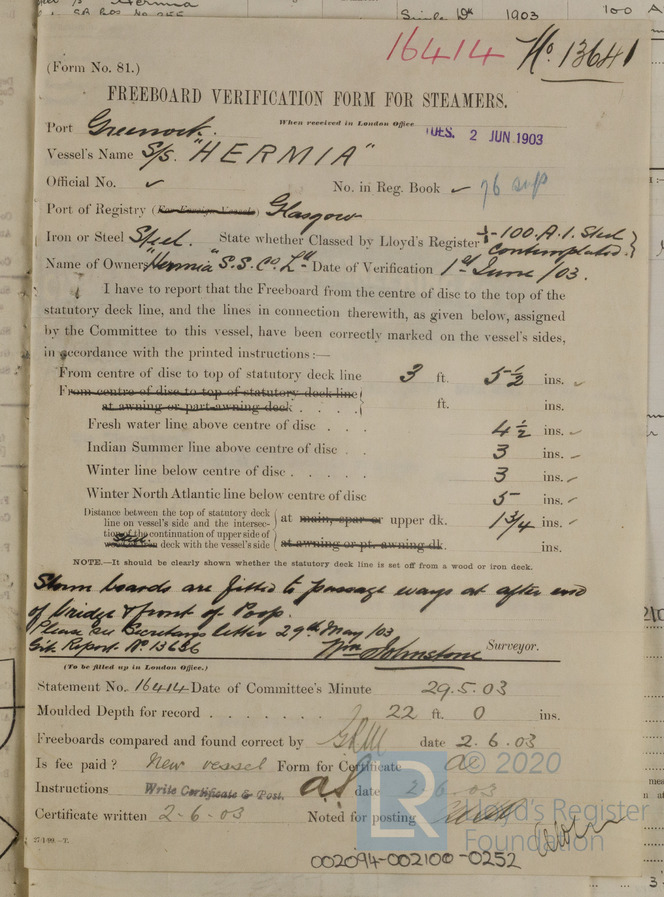 Single Dk 1903 100 A
16414 No. 13641
(Form No. 81.)
FREEBOARD VERIFICATION FORM FOR STEAMERS.
When received in London Office TUES. 2 JUN. 1903
Port Greenock.
Vessel's Name S/S. "HERMIA"
Official No. No. in Reg. Book 76 sup
Port of Registry (For Foreign Vessels) Glasgow
Iron or Steel Steel. State whether Classed by Lloyd's Register 100.A.1. Steel
Contemplated.
Name of Owners "Hermia" S.S. Co. Ld Date of Verification 1st June /03.
I have to report that the Freeboard from the centre of disc to the top of the
statutory deck line, and the lines in connection therewith, as given below, assigned
by the Committee to this vessel, have been correctly marked on the vessel's sides,
in accordance with the printed instructions:—
From centre of disc to top of statutory deck line 3 ft. 5½ ins.
From centre of disc to top of statutory deck line
at awning or part awning deck . . . . ft. ins.
Fresh water line above centre of disc . . . 4½ ins.
Indian Summer line above centre of disc . . 3 ins.
Winter line below centre of disc . . . . . 3 ins.
Winter North Atlantic line below centre of disc 5 ins.
Distance between the top of statutory deck
line on vessel's side and the intersec- at main, spar or upper dk. 1¾ ins.
tion of the continuation of upper side of
Steel deck with the vessel's side at awning or pt. awning dk. ins.
NOTE.—It should be clearly shown whether the statutory deck line is set off from a wood or iron deck.
Storm boards are fitted to passage ways at after end
of bridge & front of Poop.
Please see Secretarys letter 29th May /03
Gik. Report No. 13636 Wm Johnstone Surveyor.
(To be filled up in London Office.)
Statement No. 16414 Date of Committee's Minute 29.5.03
Moulded Depth for record . . . . . . . 22 ft. 0 ins.
Freeboards compared and found correct by date 2.6.03
Is fee paid? New vessel Form for Certificate a
Instructions Write Certificate & Post. date 2-6-03
Certificate written 2-6-03 Noted for posting
27/1/99.—T.
LR © 2020
Lloyd's Register
Foundation
002094-002100-0252